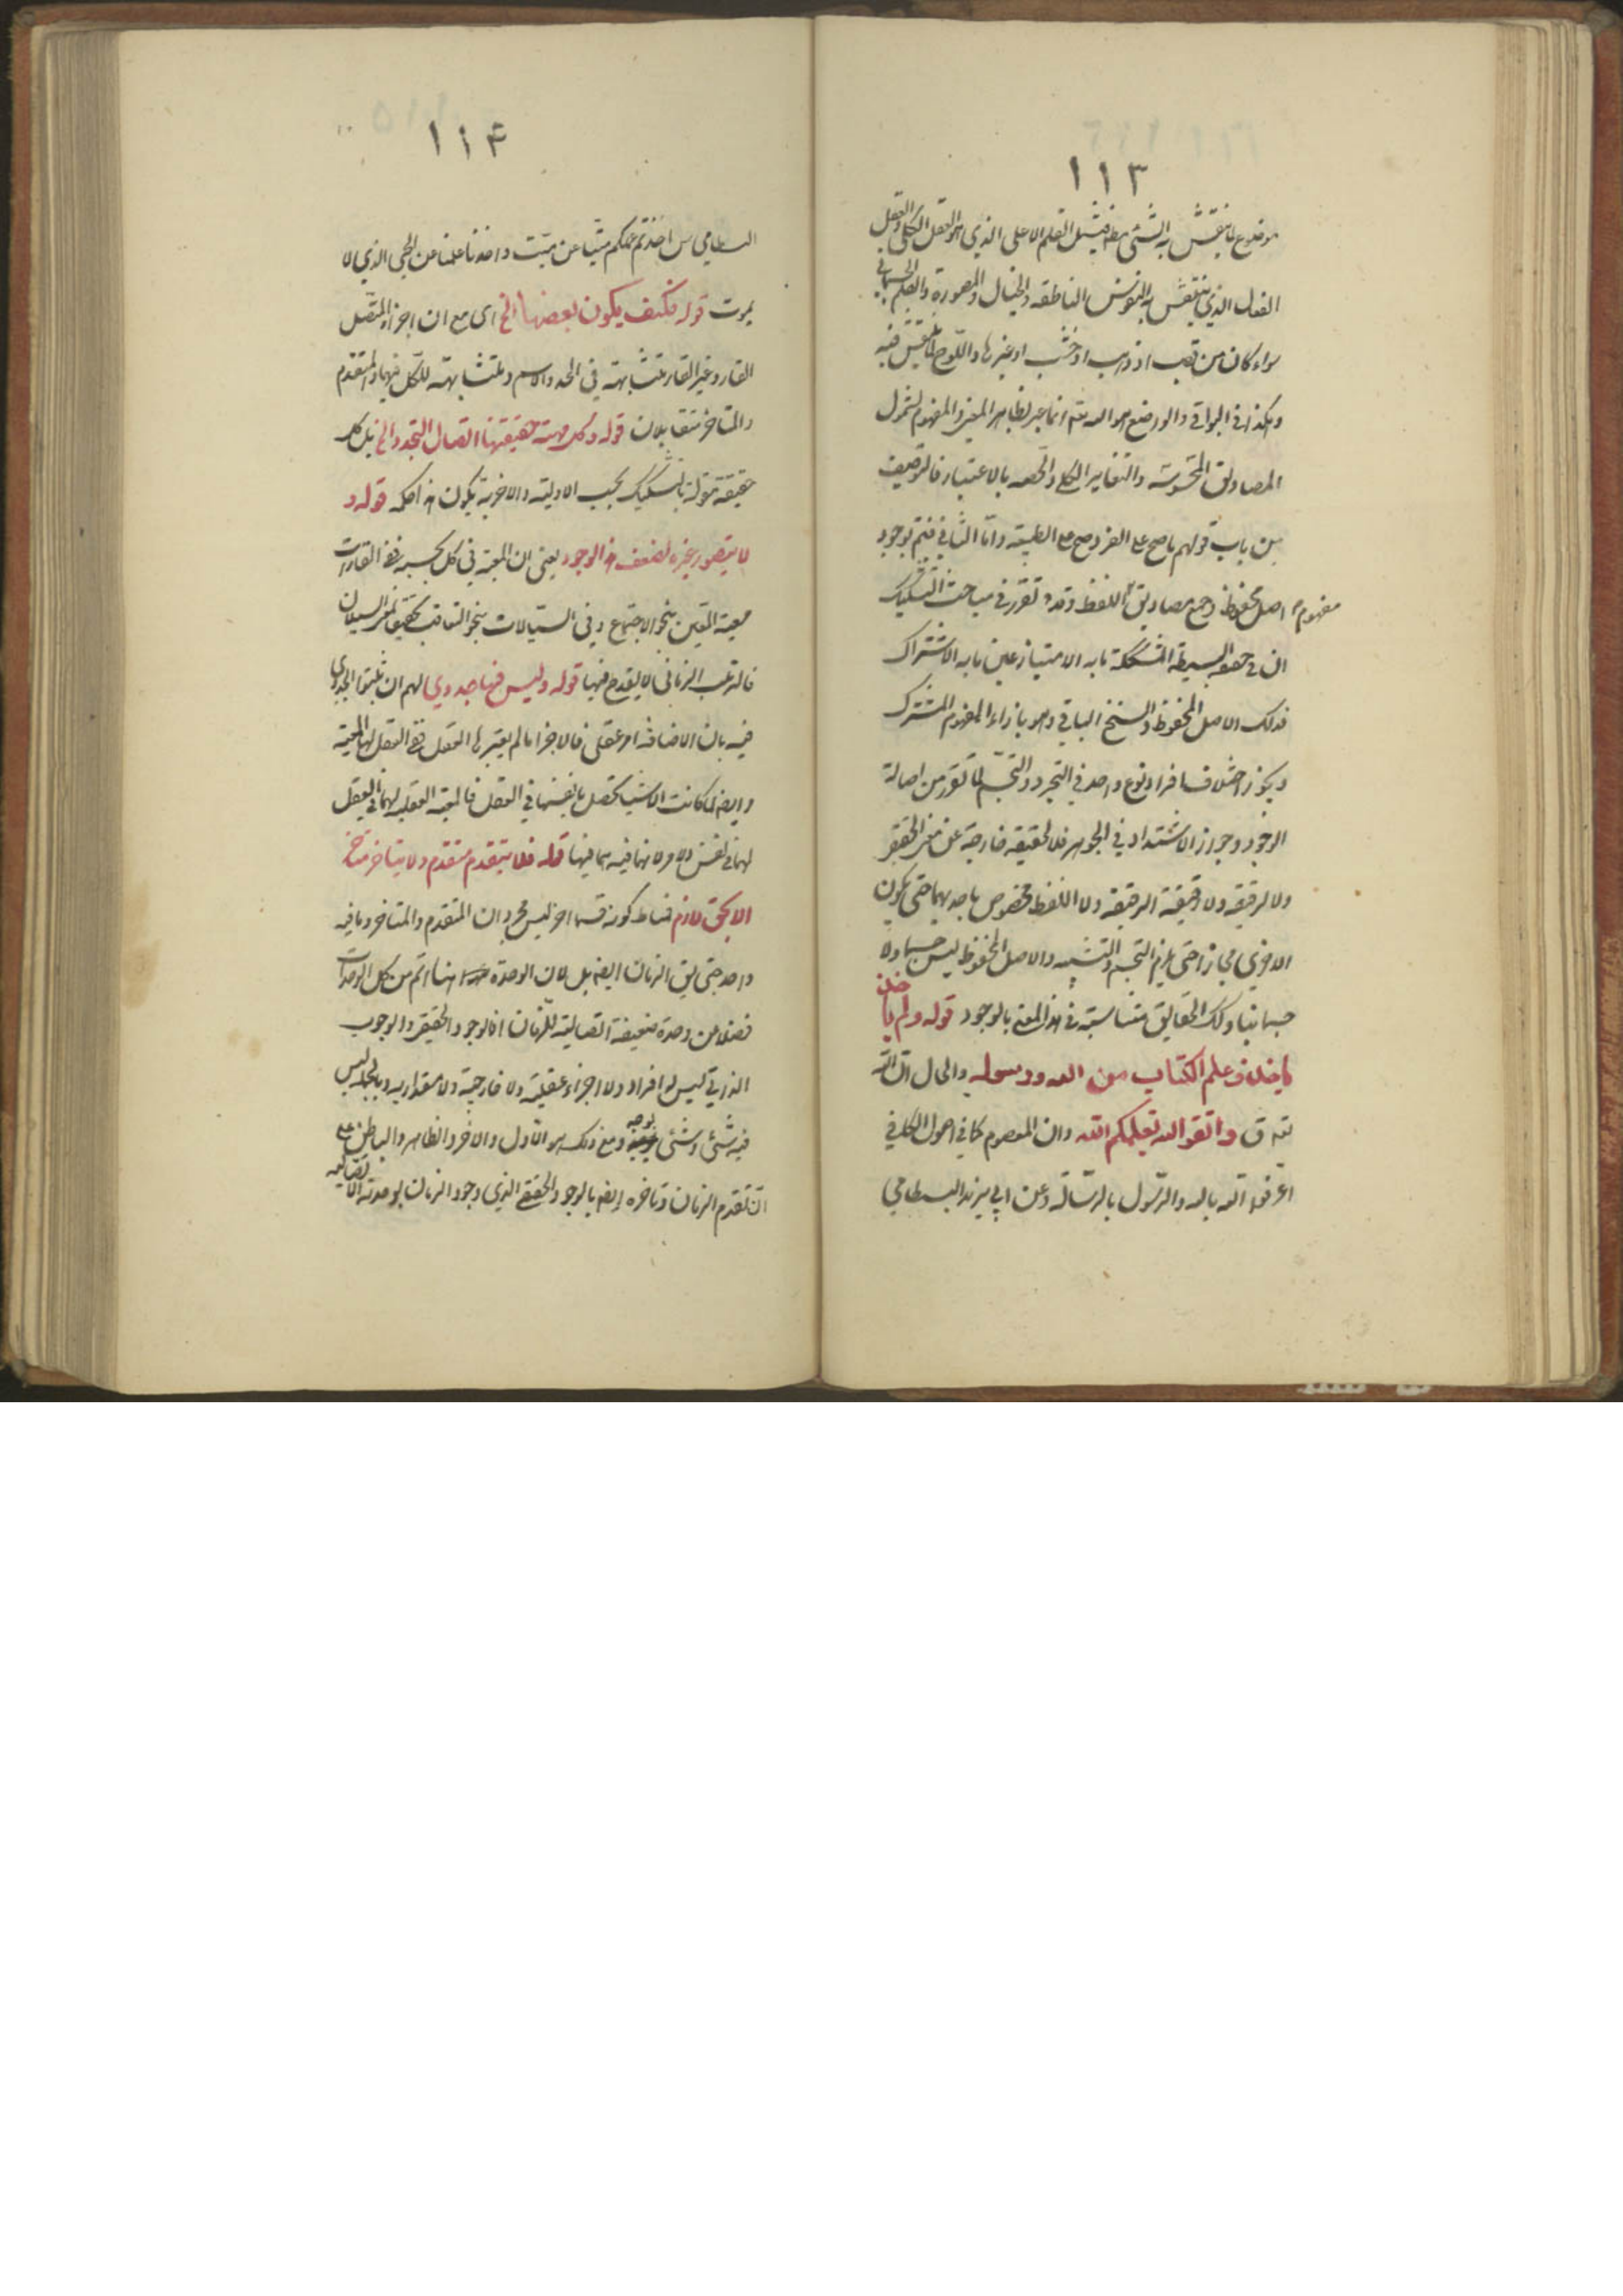 ١١٣
موضوع لما ينقش به الشئ مطلقا فيشمل القلم الاعلى الذي هو العقل الكلى والعقل
الفعال الذي ينتقش به النفوس الناطقه والخيال والمصورة والقلم الجسمانى
سواء كان من قصب او ذهب او خشب او غيرها واللوح لما ينقش فيه
وهكذا فى البواقى والواضع هو الله تعالى انما عبر بظاهر المعنى والمفهوم لشمول
المصاديق المحسوسة والتغاير الكلى والحصه بالاعتبار فالتوصيف
من باب قولهم ما صح على الفرد صح على الطبيعة واما الثانى فيتم بوجود
اصل محفوظ فى جميع مصاديق مفهوم اللفظ وقد تقرر فى مباحث التشكيك
ان فى الحقيقة البسيطة المشككة ما به الامتياز عين ما به الاشتراك
فذلك الاصل المحفوظ والسنخ الباقى وهو بازاء المفهوم المشترك
ويجوز اختلاف افراد نوع واحد فى التجرد والتجسم لما تقرر من اصالة
الوجود وجواز الاشتداد فى الجوهر فلا الحقيقة خارجة عن معنى الحقيقى
ولا الرقيقه ولا حقيقة الرقيقه ولا اللفظ مخصوص باحديهما حتى يكون
الاخرى مجازا حتى يلزم التجسم والتشبيه والاصل المحفوظ ليس جسما ولا
جسمانيا وتلك الحقايق متناسبة فى هذا المعنى بالوجود قوله ولم ياخذ
علم الكتاب من الله ورسوله والحال ان الله
تعالى ق واتقوا الله يعلمكم الله وان المعصوم كما فى اصول الكافى
اعرفوا الله بالله والرسول بالرسالة وعن ابى يزيد البسطامي
١١۴
البسطامي اخذتم علمكم ميتا عن ميت واخذنا علمنا عن الحى الذي لا
يموت قوله فكيف يكون بعضها الخ اى مع ان اجزاء المتصل
القار وغير القار متشابهة فى الحد والاسم ومتشابهة للكل فيهما والمتقدم
والمتاخر متقابلان قوله وكل مهية حقيقتها اتصال التجدد الخ بل كل
حقيقة مقولة بالتشكيك بحسب الاولية والاخرية يكون هذا حكمه قوله و
لا يتصور غيره لضعف هذا الوجود يعنى ان المعية فى كل بحسبه ففى القارات
معية المعين بنحو الاجتماع وفى السيالات بنحو التعاقب تحقيقا لمعنى السيلان
فالترتب الزمانى لا يقدح فيها قوله وليس فيها جدوي لهم ان يثبتوا الجدوى
فيه بان الاضافة امر عقلى فالاجزاء ما لم يعتبرها العقل ففى العقل لها المعية
وايضا لما كانت الاشياء تحصل بانفسها فى العقل فالمعية العقليه لهما فى العقل
لهما فى نفس الامر لانهما فيه هما فيها قوله فلا يتقدم متقدم ولا يتاخر متاخر
الا بحق لازم فمناط كونه قسما اخر ليس مجرد ان المتقدم والمتاخر وما فيه
واحد حتى يق الزمان ايضا بل لان الوحدة هنا اتم من كل الوحدات
فضلا من وحدة ضعيفة اتصالية للزمان اذ الوجود الحقيقى والوجوب
الذاتى ليس له افراد ولا اجزاء عقلية ولا خارجية ولا مقداريه وبالجمله ليس
فيه شئ وشئ بوجه ومع ذلك هو الاول والاخر والظاهر والباطن على
ان تقدم الزمان وتاخره ايضا بالوجود الحقيقى الذي وجود الزمان بوحدته الاتصاليه